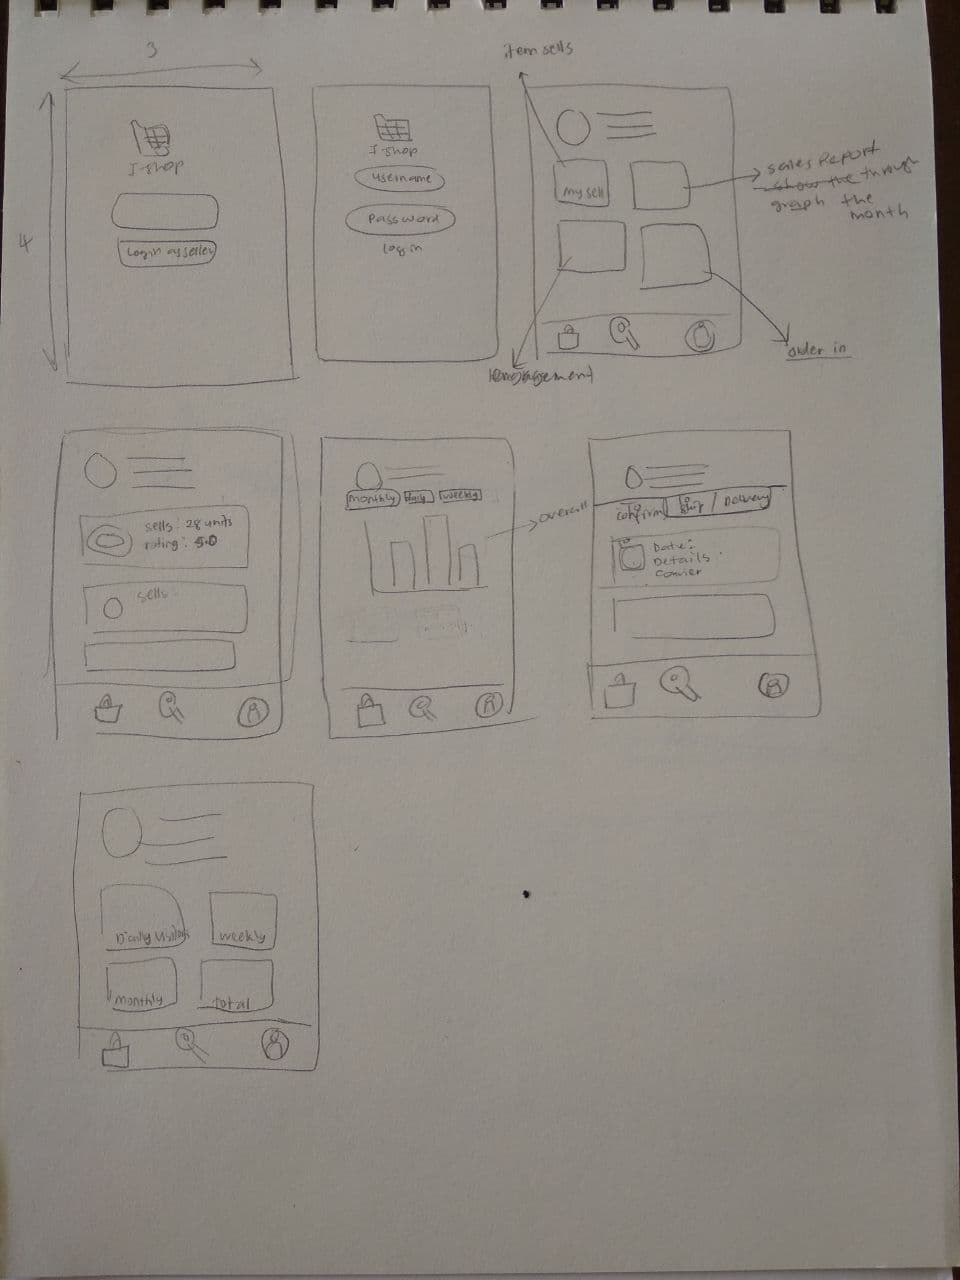 3
4
I-shop
Login as seller
I-shop
username
Password
Log in
item sells
my sell
Sales Report
show the through
graph the
month
engagement
order in
sells : 28 units
rating : 5.0
sells
monthly
daily
weekly
overall
confirm
ship
Delivery
Date:
Details
Courier
Daily Visitors
weekly
monthly
total